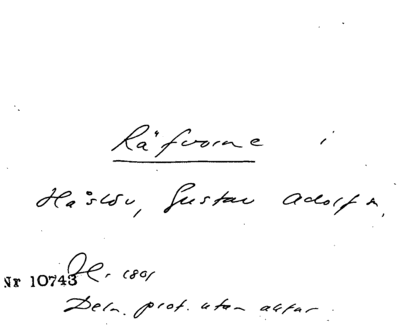 Räfvorne i
Håslöv, Gustav Adolf s.
Nr 10743 Ht. 1801
Deln. prot. utan aktar.